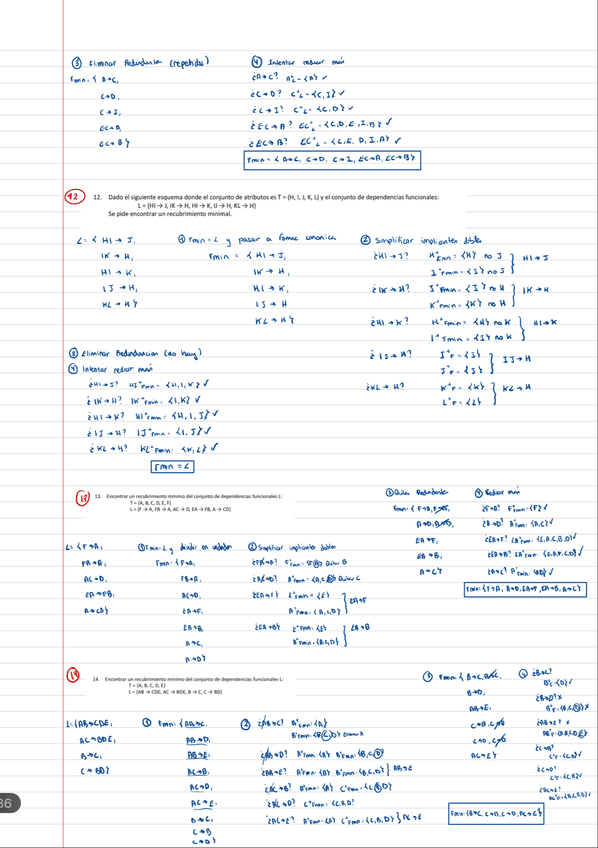 ③ Eliminar Redundantes (repetidas)
Fmin = { B→C,
C→D,
C→I,
EC→A,
EC→B}
④ Intentar reducir más
¿A→C? A⁺L = {A} ✓
¿C→D? C⁺L = {C, I} ✓
¿C→I? C⁺L = {C, D} ✓
¿EC→A? EC⁺L = {C, D, E, I, B} ✓
¿EC→B? EC⁺L = {C, E, D, I, A} ✓
Fmin = { A→C, C→D, C→I, EC→A, EC→B}
12
12. Dado el siguiente esquema donde el conjunto de atributos es T = {H, I, J, K, L} y el conjunto de dependencias funcionales:
L = {HI → J, IK → H, HI → K, IJ → H, KL → H}
Se pide encontrar un recubrimiento minimal.
L = { HI → J,
IK → H,
HI → K,
IJ → H,
KL → H}
① Fmin = L y pasar a forma canonica
Fmin = { HI → J,
IK → H,
HI → K,
IJ → H
KL → H}
② Simplificar implicantes dobles
¿HI → J? H⁺Fmin = {H} no J
I⁺Fmin = {I} no J } HI → J
¿IK → H? I⁺Fmin = {I} no H
K⁺Fmin = {K} no H } IK → H
¿HI → K? H⁺Fmin = {H} no K
I⁺Fmin = {I} no K } HI → K
¿IJ → H? I⁺F = {I}
J⁺F = {J} } IJ → H
¿KL → H? K⁺F = {K}
L⁺F = {L} } KL → H
③ Eliminar Redundancian (no hay)
④ Intentar reducir más
¿HI → J? HI⁺Fmin = {H, I, K} ✓
¿IK → H? IK⁺Fmin = {I, K} ✓
¿HI → K? HI⁺Fmin = {H, I, J} ✓
¿IJ → H? IJ⁺Fmin = {I, J} ✓
¿KL → H? KL⁺Fmin: {K, L} ✓
Fmin = L
13
13. Encontrar un recubrimiento mínimo del conjunto de dependencias funcionales L:
T = {A, B, C, D, E, F}
L = {F → A, FB → A, AC → D, EA → FB, A → CD}
L = { F → A,
FB → A,
AC → D,
EA → FB,
A → CD}
① Fmin = L y dividir en unidades
Fmin = { F→A,
FB→A,
AC→D,
EA→F,
EA→B,
A→C,
A→D}
② Simplificar implicantes dobles
¿FB→A? F⁺min = {F, A} Quitar B
¿AC→D? A⁺Fmin = {A, C, D} Quitar C
¿EA→F? E⁺Fmin = {E}
A⁺Fmin: {A, C, D} } EA→F
¿EA→B? E⁺Fmin: {E}
A⁺Fmin: {A, C, D} } EA→B
③ Quitar Redundante
Fmin: { F→A, F→A,
A→D, A→D,
EA→F,
EA→B,
A→C}
④ Reducir más
¿F→A? F⁺Fmin: {F} ✓
¿A→D? A⁺Fmin: {A, C} ✓
¿EA→F? EA⁺Fmin: {E, A, C, B, D} ✓
¿EA→B? EA⁺Fmin: {E, A, F, C, D} ✓
¿A→C? A⁺Fmin: {A, D} ✓
Fmin: {F→A, A→D, EA→F, EA→B, A→C}
14
14. Encontrar un recubrimiento mínimo del conjunto de dependencias funcionales L:
T = {A, B, C, D, E}
L = {AB → CDE, AC → BDE, B → C, C → BD}
L = {AB→CDE,
AC→BDE,
B→C,
C→BD}
① Fmin: {AB→C,
AB→D,
AB→E,
AC→B,
AC→D,
AC→E,
B→C,
C→B
C→D}
② ¿AB→C? A⁺Fmin: {A}
B⁺Fmin: {B, C, D} Eliminar A
¿AB→D? A⁺Fmin: {A} B⁺Fmin: {B, C, D}
¿AB→E? A⁺Fmin: {A} B⁺Fmin: {B, C, D} } AB→E
¿AC→B? A⁺Fmin: {A} C⁺Fmin: {C, B, D}
¿AC→D? C⁺Fmin: {C, B, D}
¿AC→E? A⁺Fmin: {A} C⁺Fmin: {C, B, D} } AC→E
③ Fmin: { B→C, B→C,
B→D,
AB→E,
C→B, C→B
C→D, C→D
AC→E}
④ ¿B→C?
B⁺F: {D} ✓
¿B→D? x
¿AB→E? x
¿C→B?
¿C→D?
¿AC→E?
Fmin: {B→C, C→B, C→D, AC→E}
36